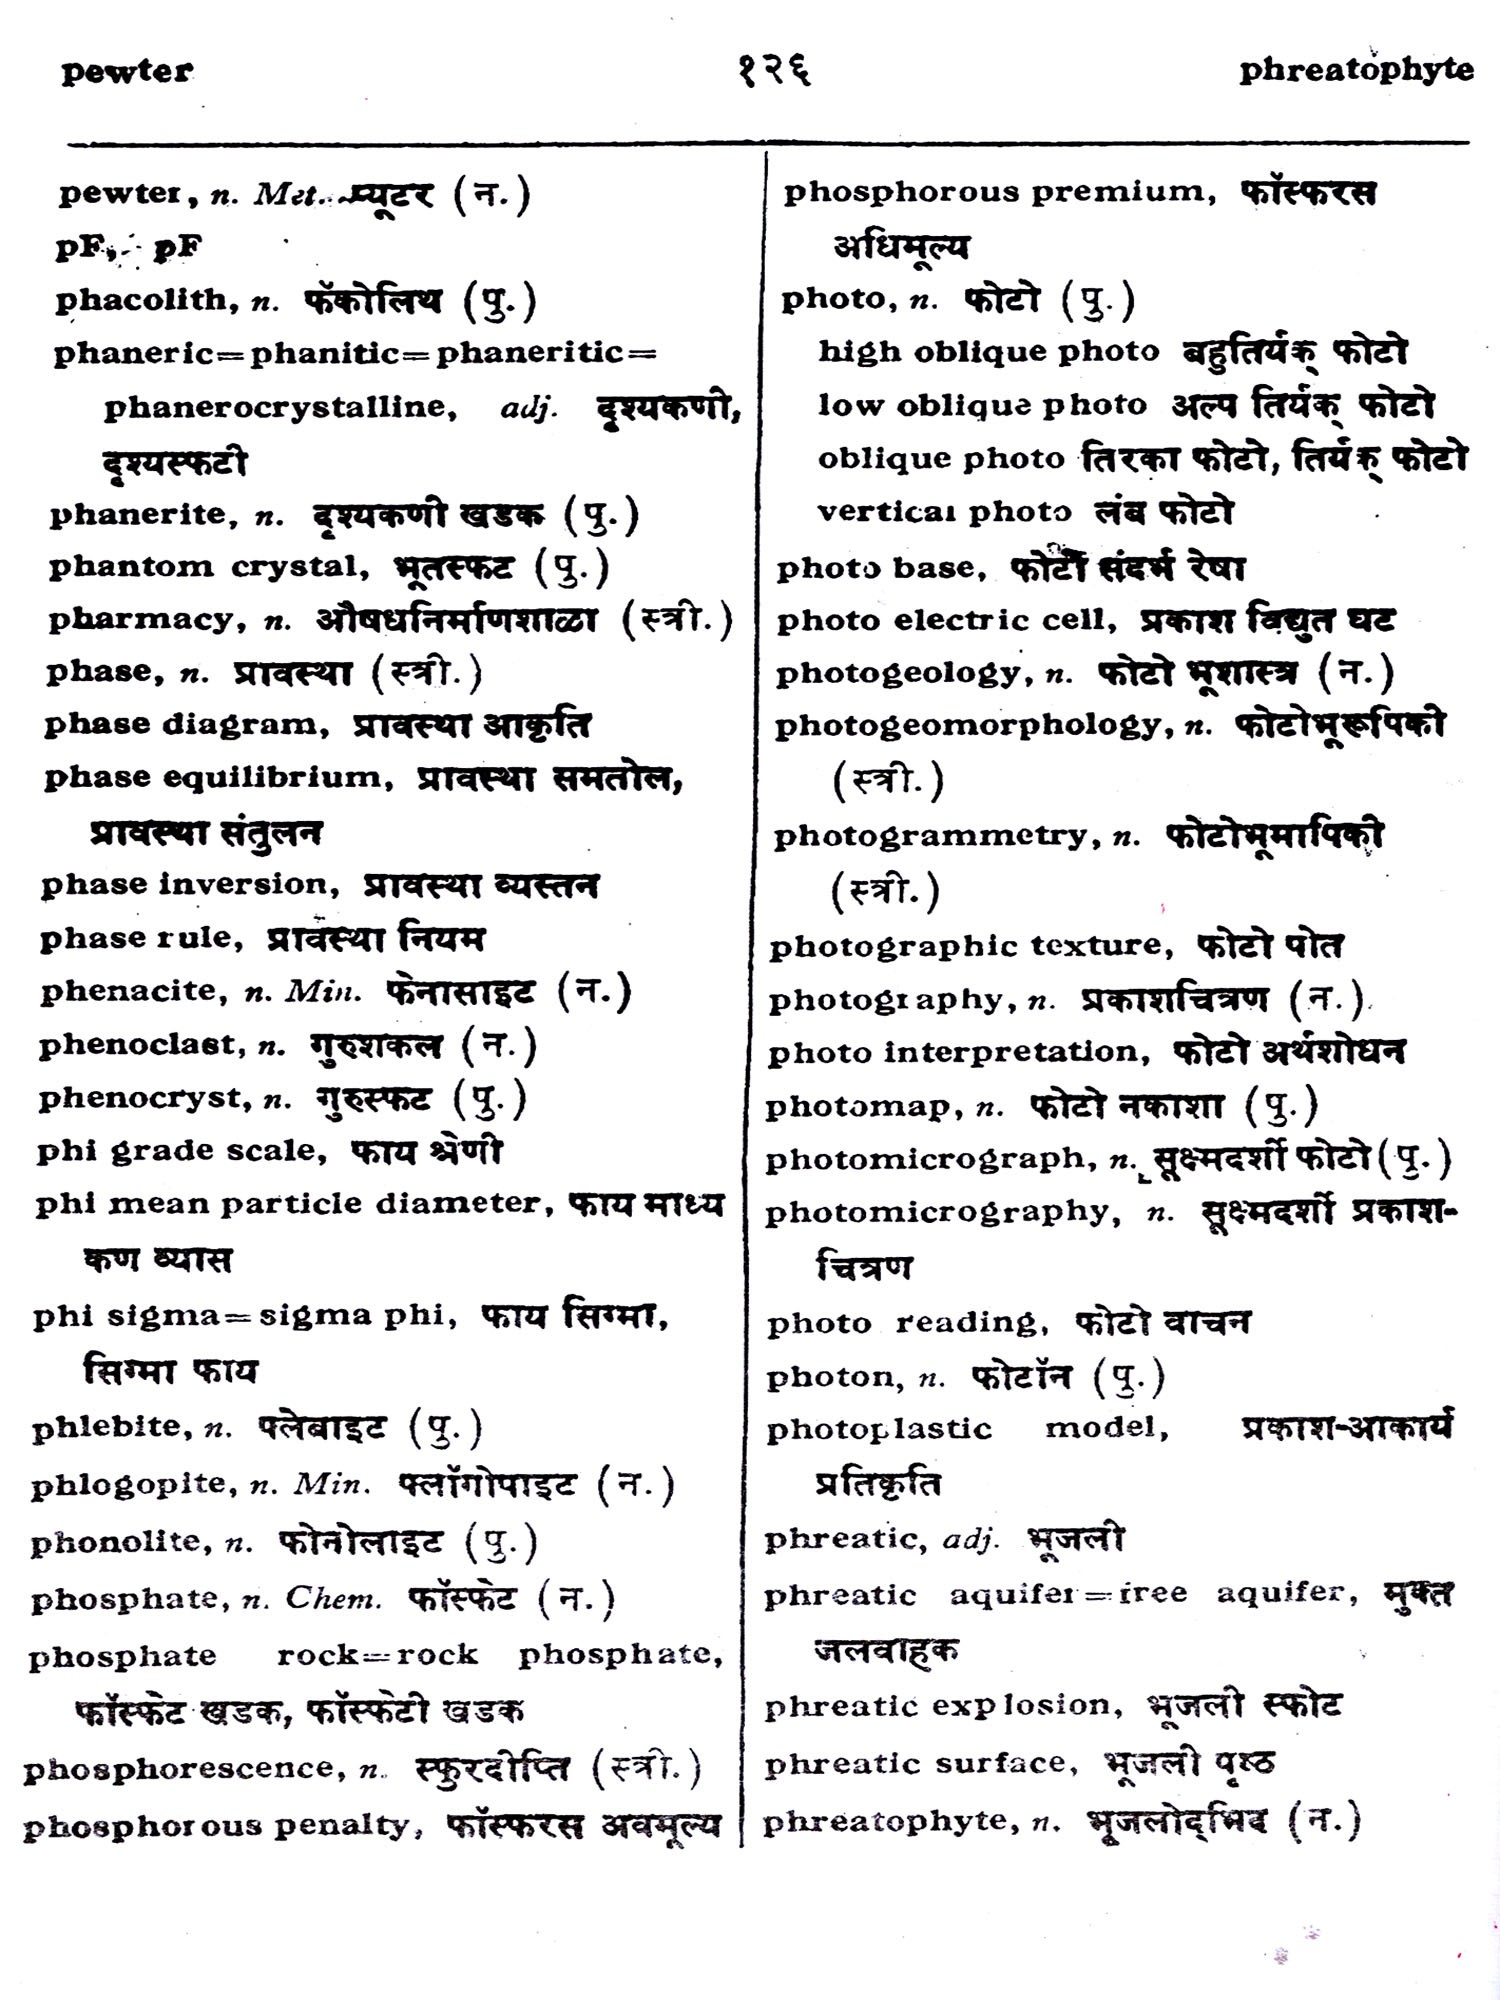 pewter
१२६
phreatophyte
pewter, n. Met. प्यूटर (न.)
pF, pF
phacolith, n. फॅकोलिथ (पु.)
phaneric=phanitic=phaneritic=
phanerocrystalline, adj. दृश्यकणी,
दृश्यस्फटी
phanerite, n. दृश्यकणी खडक (पु.)
phantom crystal, भूतस्फट (पु.)
pharmacy, n. औषधनिर्माणशाळा (स्त्री.)
phase, n. प्रावस्था (स्त्री.)
phase diagram, प्रावस्था आकृति
phase equilibrium, प्रावस्था समतोल,
प्रावस्था संतुलन
phase inversion, प्रावस्था व्यस्तन
phase rule, प्रावस्था नियम
phenacite, n. Min. फेनासाइट (न.)
phenoclast, n. गुरुशकल (न.)
phenocryst, n. गुरुस्फट (पु.)
phi grade scale, फाय श्रेणी
phi mean particle diameter, फाय माध्य
कण व्यास
phi sigma=sigma phi, फाय सिग्मा,
सिग्मा फाय
phlebite, n. फ्लेबाइट (पु.)
phlogopite, n. Min. फ्लॉगोपाइट (न.)
phonolite, n. फोनोलाइट (पु.)
phosphate, n. Chem. फॉस्फेट (न.)
phosphate rock=rock phosphate,
फॉस्फेट खडक, फॉस्फेटी खडक
phosphorescence, n. स्फुरदीप्ति (स्त्री.)
phosphorous penalty, फॉस्फरस अवमूल्य
phosphorous premium, फॉस्फरस
अधिमूल्य
photo, n. फोटो (पु.)
high oblique photo बहुतिर्यक् फोटो
low oblique photo अल्प तिर्यक् फोटो
oblique photo तिरका फोटो, तिर्यक् फोटो
vertical photo लंब फोटो
photo base, फोटो संदर्भ रेषा
photo electric cell, प्रकाश विद्युत घट
photogeology, n. फोटो भूशास्त्र (न.)
photogeomorphology, n. फोटोभूरूपिकी
(स्त्री.)
photogrammetry, n. फोटोभूमापिकी
(स्त्री.)
photographic texture, फोटो पोत
photography, n. प्रकाशचित्रण (न.)
photo interpretation, फोटो अर्थशोधन
photomap, n. फोटो नकाशा (पु.)
photomicrograph, n. सूक्ष्मदर्शी फोटो (पु.)
photomicrography, n. सूक्ष्मदर्शी प्रकाश-
चित्रण
photo reading, फोटो वाचन
photon, n. फोटॉन (पु.)
photoplastic model, प्रकाश-आकार्य
प्रतिकृति
phreatic, adj. भूजली
phreatic aquifer=free aquifer, मुक्त
जलवाहक
phreatic explosion, भूजली स्फोट
phreatic surface, भूजली पृष्ठ
phreatophyte, n. भूजलोद्‌भिद (न.)